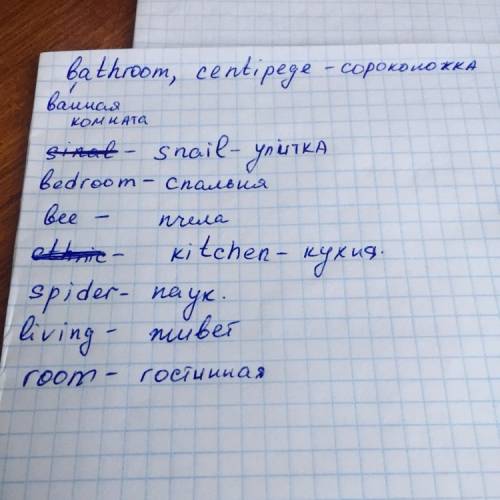 bathroom, centipede - сороконожка
ванная
комната
sinal - snail - улитка
bedroom - спальня
bee - пчела
ethnic - kitchen - кухня.
spider - паук.
living - живет
room - гостинная